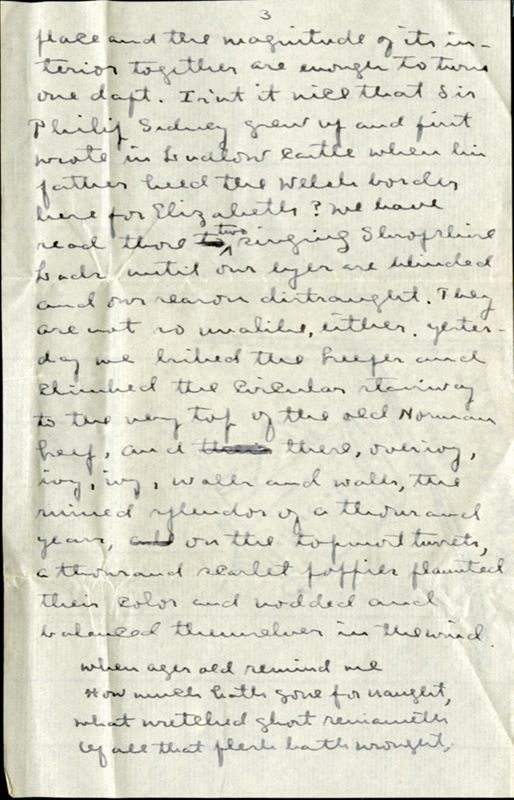 3
place and the magnitude of its in-
terior together are enough to turn
one daft. Isn't it nice that Sir
Philip Sidney grew up and first
wrote in Ludlow castle when his
father held the Welsh border
here for Elizabeth? We have
read those to two singing Shropshire
Lads until our eyes are blinded
and our reason distraught. They
are not so unalike, either. Yester-
day we bribed the keeper and
climbed the circular stairway
to the very top of the old Norman
keep, and there, over ivy,
ivy, ivy, walls and walls, the
ruined splendor of a thousand
years, and on the topmost turrets,
a thousand scarlet poppies flaunted
their color and nodded and
balanced themselves in the wind.
When ages old remind me
How much hath gone for naught,
What wretched ghost remaineth
Of all that flesh hath wrought,